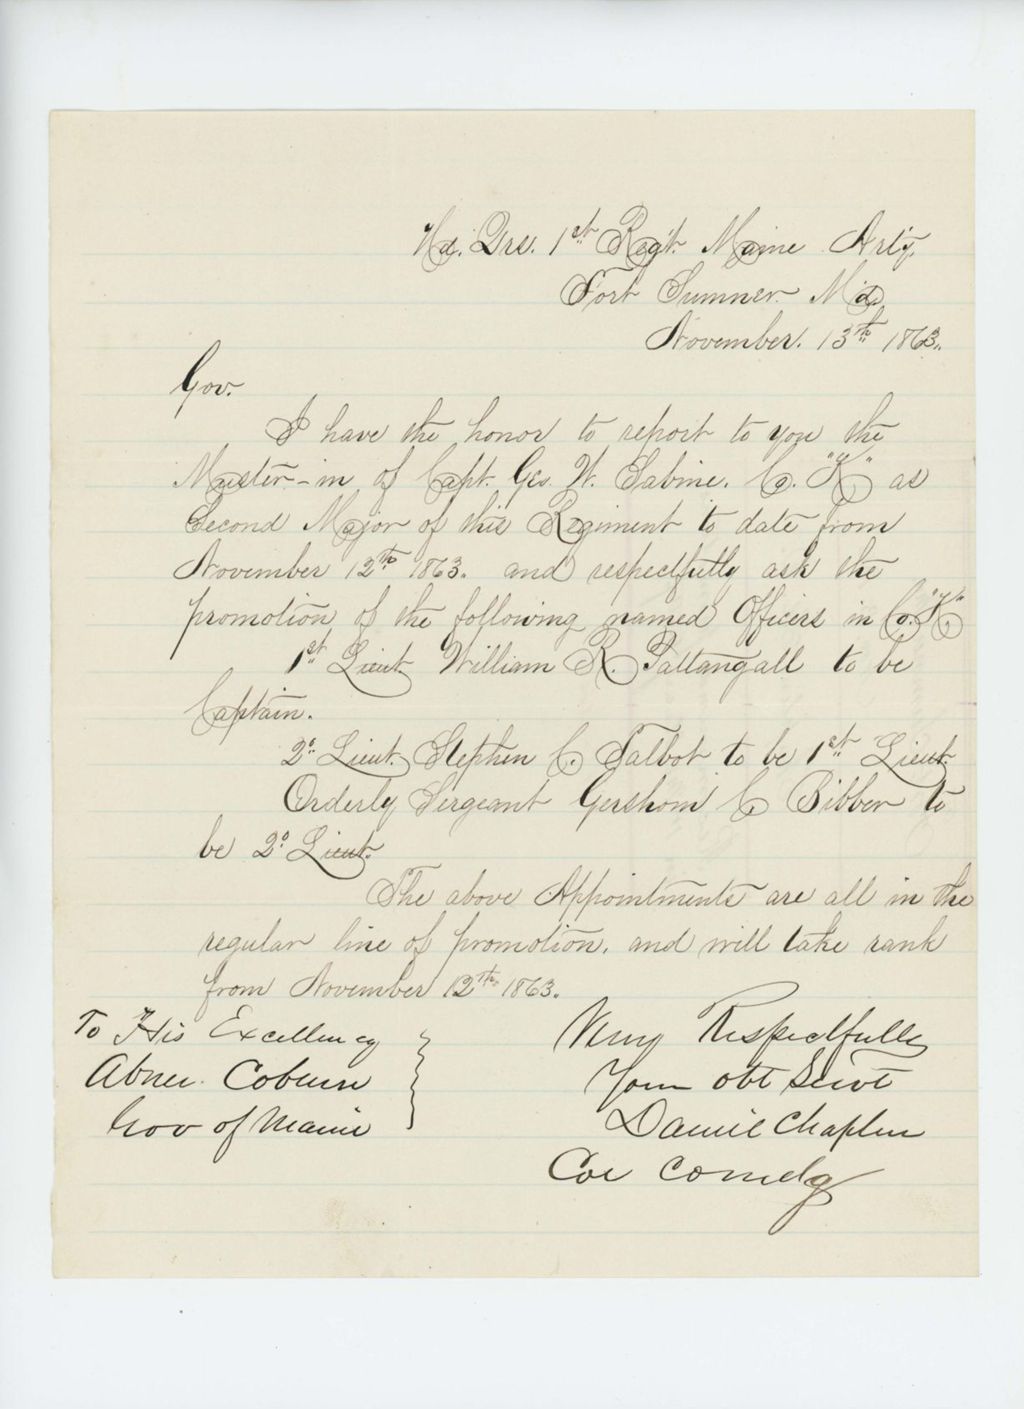 Hd. Qrs. 1st Reg't. Maine Art'y.
Fort Sumner. M'd.
November. 13th 1863.
Gov.
I have the honor to report to you the
Muster-in of Capt. Geo. W. Sabine. Co. "K" as
Second Major of this Regiment to date from
November 12th 1863. and respectfully ask the
promotion of the following named Officers in Co. "K"
1st Lieut. William R. Pattangall to be
Captain.
2d Lieut. Stephen C. Talbot to be 1st Lieut.
Orderly Sergeant Gershom C. Bibber to
be 2d Lieut.
The above Appointments are all in the
regular line of promotion. and will take rank
from November 12th 1863.
To His Excellency
Abner Coburn
Gov of Maine
Very Respectfully
Your obt Servt
Daniel Chaplin
Col Comdg